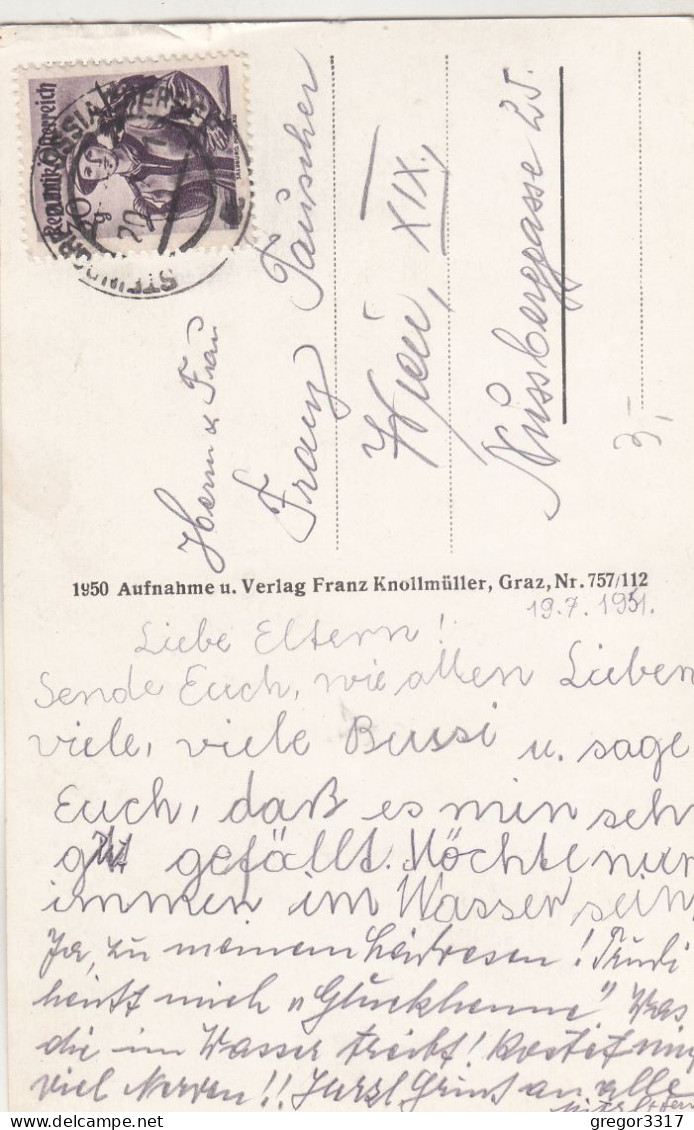 Republik Österreich
Herrn & Frau
Franz Tauscher
Wien, XIX.,
Nussberggasse 25.
3,-
1950 Aufnahme u. Verlag Franz Knollmüller, Graz, Nr. 757/112
19.7.1951.
Liebe Eltern!
Sende Euch, wie allen Lieben
viele, viele Bussi u. sage
Euch, daß es mir sehr
gut gefällt. Möchte nur
immer im Wasser sein.
Ja, zu meinem Leidwesen! Trudi
heißt mich "Gluckhenne" Was
die im Wasser treibt! Kostet mir
viel Nerven!! Gruß an alle
gregor3317
delcampe.net